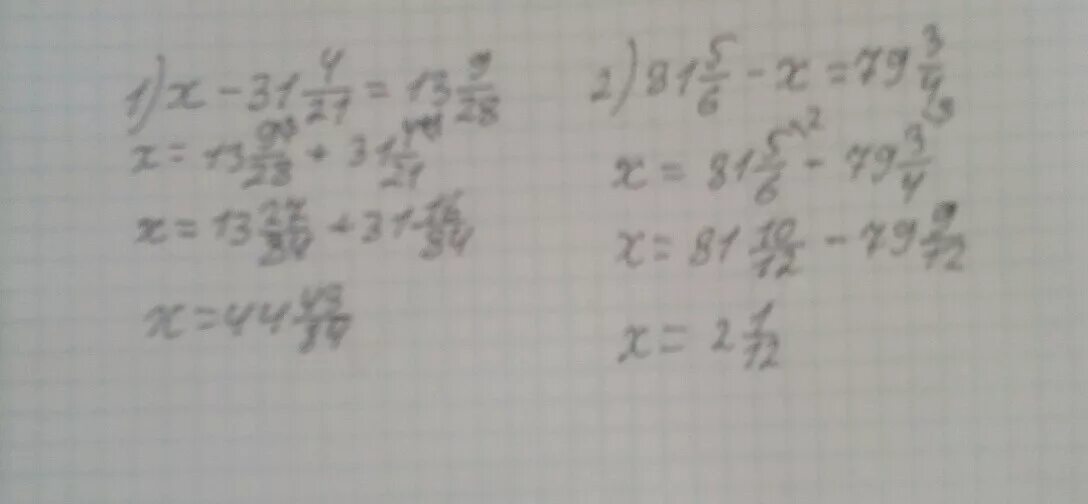 1) x - 31 4/21 = 13 9/28
x = 13 9/28 + 31 4/21
x = 13 27/84 + 31 16/84
x = 44 43/84
2) 81 5/6 - x = 79 3/4
x = 81 5/6 \2 - 79 3/4 \3
x = 81 10/12 - 79 9/12
x = 2 1/12